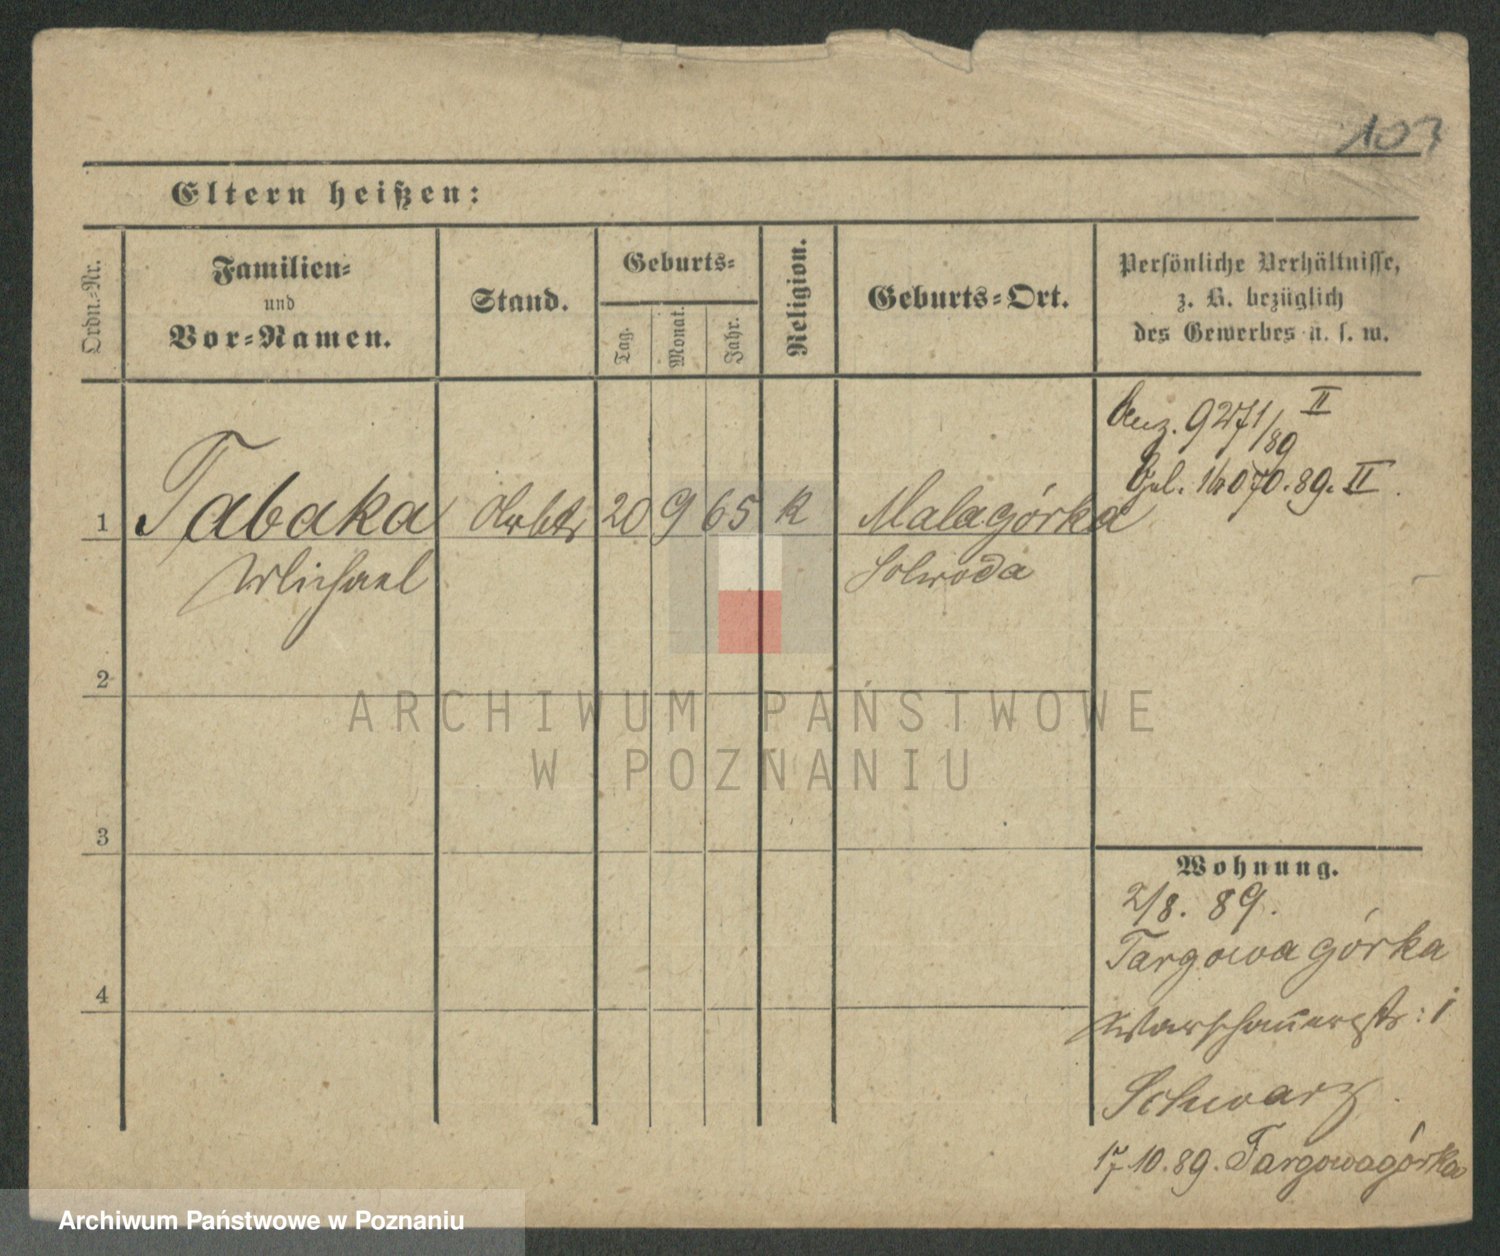 103
Eltern heißen:
Ordn.-Nr.
Familien-
und
Vor-Namen.
Stand.
Geburts-
Tag.
Monat.
Jahr.
Religion.
Geburts-Ort.
Persönliche Verhältnisse,
z. B. bezüglich
des Gewerbes u. s. w.
9271/89 II
89. II.
1 Tabaka 20 9 65 K Malagórka
Michael Schroda
2
3
4
Wohnung.
2/8. 89.
Targowagórka
Warschauerstr: 1
Schwarz
17.10.89. Targowagórka
ARCHIWUM PAŃSTWOWE
W POZNANIU
Archiwum Państwowe w Poznaniu